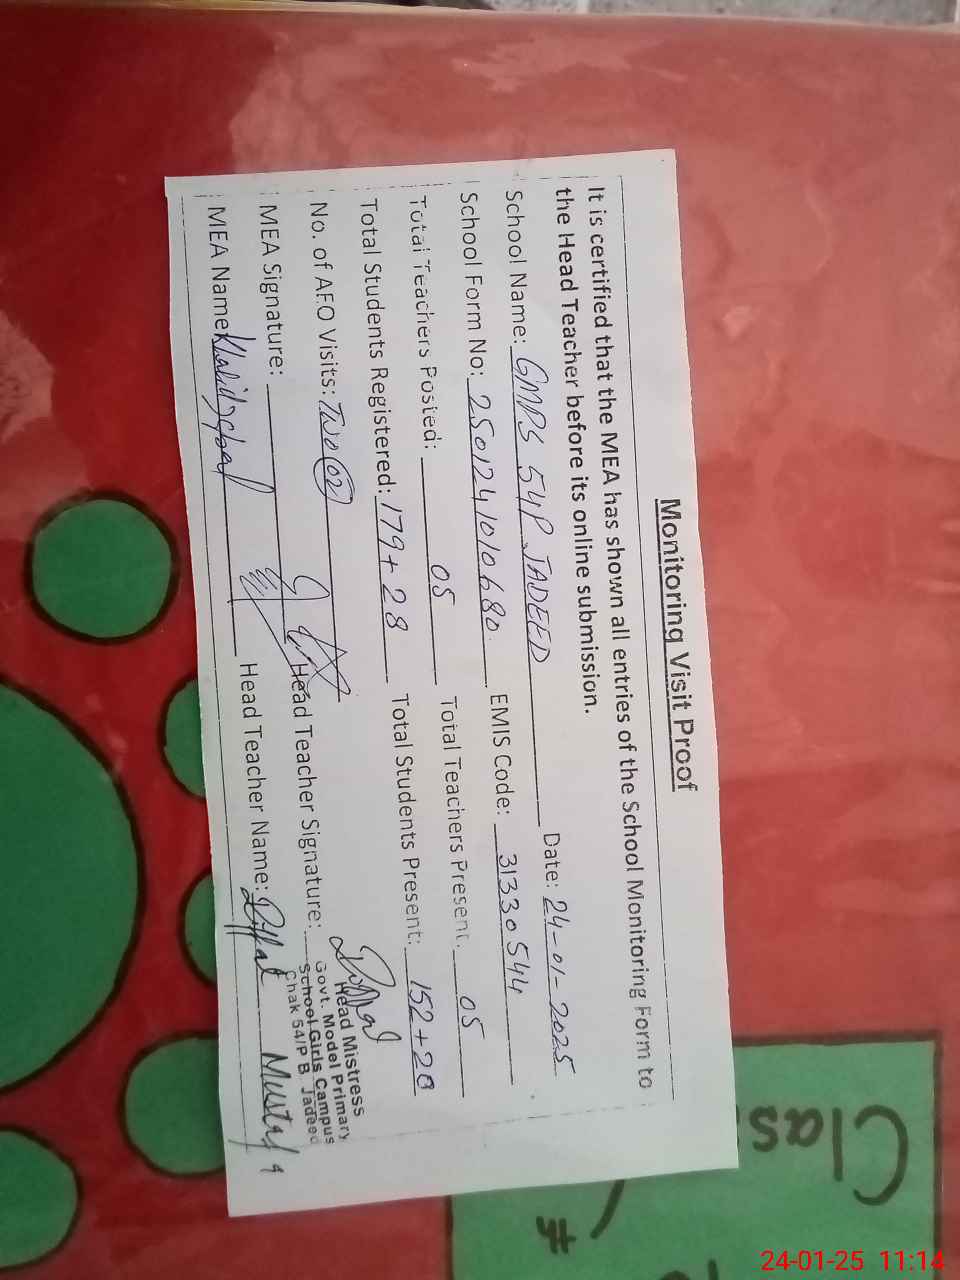 Monitoring Visit Proof
It is certified that the MEA has shown all entries of the School Monitoring Form to
the Head Teacher before its online submission.
School Name: GMPS 54P JADEED Date: 24-01-2025
School Form No: 2501241010680 EMIS Code: 31330544
Total Teachers Posted: 05 Total Teachers Present: 05
Total Students Registered: 179+28 Total Students Present: 152+20
No. of AEO Visits: Two (02)
MEA Signature: Head Teacher Signature:
Head Mistress
Govt. Model Primary
School Girls Campus
Chak 54/P B. Jadeed
MEA Name: Khalid Iqbal Head Teacher Name: Riffat Mustafa
Clas
#
24-01-25 11:14